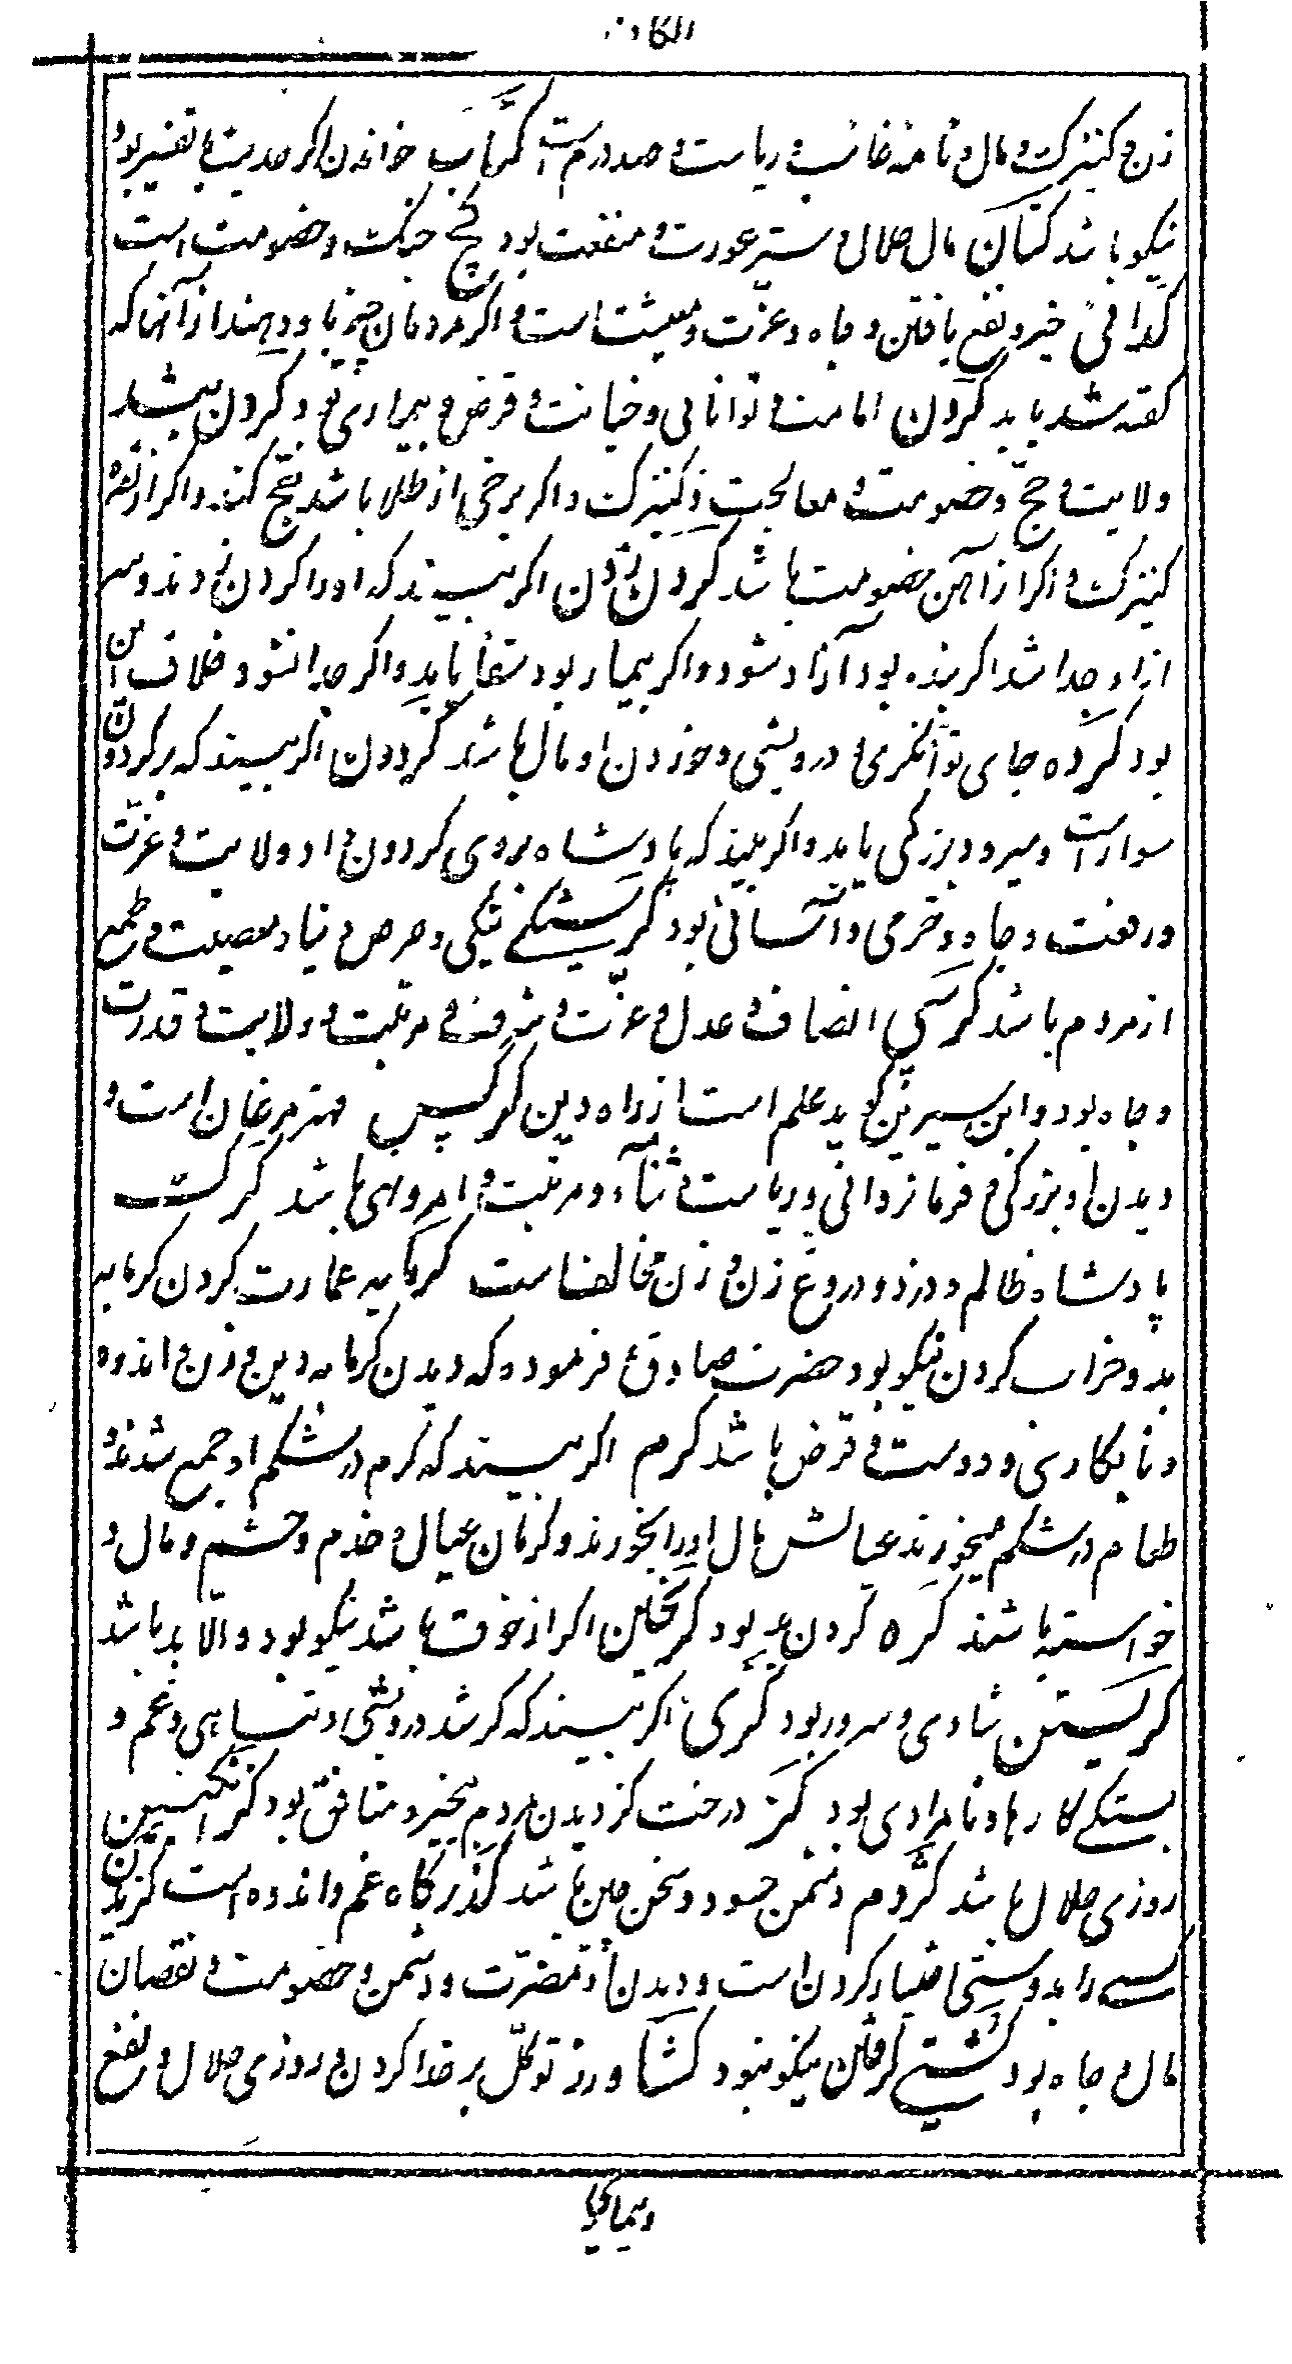 الکاف
زن و کنیزک و مال و نامه غائب و ریاست و صد درم است کتاب خواندن اگر حدیث یا تفسیر بود
نیکو باشد کتان مال حلال و ستر عورت و منفعت بود کچ جنک و خصومت است
کدائی خیر و نفع یافتن و جاه و عزّت و معیشت است و اکر مردمان چیز باو دهند از آنها که
کفته شد یابد کردن امانت و توانائی و خیانت و قرض و بیماری بود کردن بند
ولایت و حجّ و خصومت و معالجت و کنیزک و اکر برخی از طلا باشد حجّ کند و اکر از نقره
کنیزک و اکر از آهن خصومت باشد کردن زدن اکر بیند که او را کردن زدند و سر
از او جدا شد اکر بنده بود آزاد شود و اکر بیمار بود شفا یابد و اکر جدا نشود خلاف این
بود کرده جای توانکری و درویشی و خوردن او مال باشد کردون اکر بیند که بر کردون
سوار است و میرود بزرکی یابد و اکر بیند که پادشاه بروی کردون و او ولایت و عزّت
و رفعت و جاه و خرمی و آسانی بود کرسنکی نیکی و حرص و بنیاد معصیت و طمع
از مردم باشد کرسی انصاف و عدل و عزّت و شرف و مرتبت و ولایت و قدرت
و جاه بود و ابن سیرین کوید علم است از راه دین کرکس مهتر مرغان است و
دیدن او بزرکی و فرمانروائی و ریاست و ثنآء و مرتبت و امر و نهی باشد کرک
پادشاه ظالم و دزد و دروغ زن و زن مخالف است کرمابه عمارت کردن کرمابه
بد و خراب کردن نیکو بود حضرت صادق ع فرموده که دیدن کرمابه دین و زن و اندوه
و نابکاری و دوست و قرض باشد کرم اکر بیند که کرم در شکم او جمع شدند و
طعام در شکم میخورند عیالش مال او را بخورند و کرمان عیال و خدم و حشم و مال و
خواسته باشند کره کردن بد بود کریختن اکر از خوف باشد نیکو بود و الّا بد باشد
کریستن شادی و سرور بود کری اکر بیند که کر شد درویشی و تباهی و غم و
بستکی کارها و نامرادی بود کز درخت کز دیدن مردم بیخیر و منافق بود کزانکبین
روزی حلال باشد کژدم دشمن حسود و سخن چین باشد کذرکاه غم و اندوه است کزیدن
کسی را بدوستی اختیار کردن است و دیدن او مضرّت و دشمن و خصومت و نقصان
مال و جاه بود کشتی کرفتن نیکو نبود کشاورز توکّل بر خدا کردن و روزی حلال و نفع